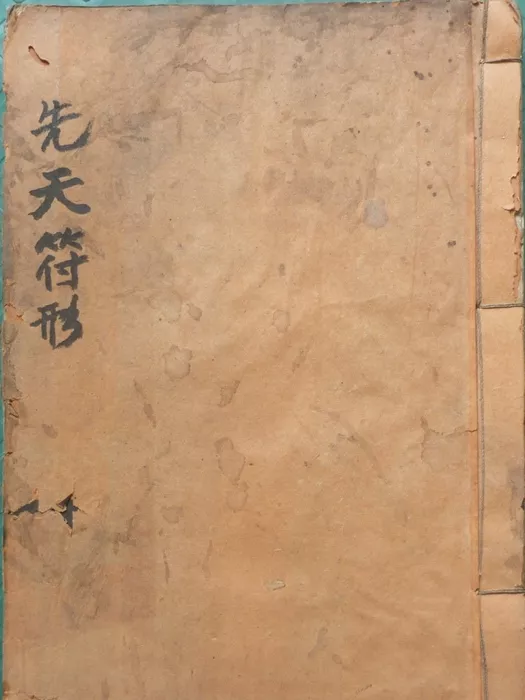 先天符形